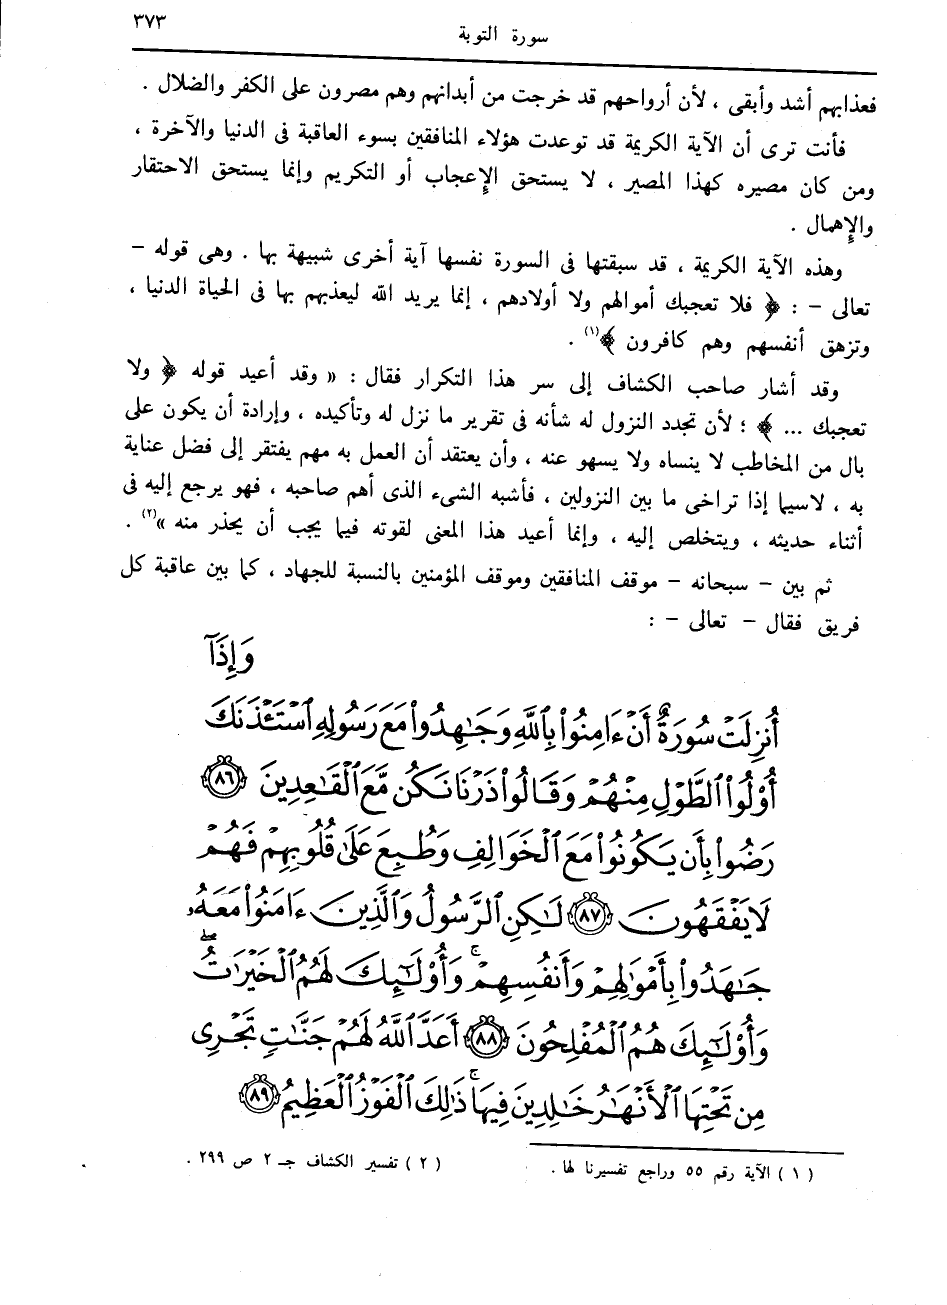 سورة التوبة
٣٧٣
فعذابهم أشد وأبقى ، لأن أرواحهم قد خرجت من أبدانهم وهم مصرون على الكفر والضلال .
فأنت ترى أن الآية الكريمة قد توعدت هؤلاء المنافقين بسوء العاقبة فى الدنيا والآخرة ،
ومن كان مصيره كهذا المصير ، لا يستحق الإعجاب أو التكريم وإنما يستحق الاحتقار
والإهمال .
وهذه الآية الكريمة ، قد سبقتها فى السورة نفسها آية أخرى شبيهة بها . وهى قوله –
تعالى – : ﴿ فلا تعجبك أموالهم ولا أولادهم ، إنما يريد الله ليعذبهم بها فى الحياة الدنيا ،
وتزهق أنفسهم وهم كافرون ﴾(١) .
وقد أشار صاحب الكشاف إلى سر هذا التكرار فقال : « وقد أعيد قوله ﴿ ولا
تعجبك ... ﴾ ؛ لأن تجدد النزول له شأنه فى تقرير ما نزل له وتأكيده ، وإرادة أن يكون على
بال من المخاطب لا ينساه ولا يسهو عنه ، وأن يعتقد أن العمل به مهم يفتقر إلى فضل عناية
به ، لاسيما إذا تراخى ما بين النزولين ، فأشبه الشىء الذى أهم صاحبه ، فهو يرجع إليه فى
أثناء حديثه ، ويتخلص إليه ، وإنما أعيد هذا المعنى لقوته فيما يجب أن يحذر منه »(٢) .
ثم بين – سبحانه – موقف المنافقين وموقف المؤمنين بالنسبة للجهاد ، كما بين عاقبة كل
فريق فقال – تعالى – :
وَإِذَآ
أُنزِلَتْ سُورَةٌ أَنْ ءَامِنُوا۟ بِٱللَّهِ وَجَٰهِدُوا۟ مَعَ رَسُولِهِ ٱسْتَـْٔذَنَكَ
أُو۟لُوا۟ ٱلطَّوْلِ مِنْهُمْ وَقَالُوا۟ ذَرْنَا نَكُن مَّعَ ٱلْقَٰعِدِينَ ٨٦
رَضُوا۟ بِأَن يَكُونُوا۟ مَعَ ٱلْخَوَالِفِ وَطُبِعَ عَلَىٰ قُلُوبِهِمْ فَهُمْ
لَا يَفْقَهُونَ ٨٧ لَٰكِنِ ٱلرَّسُولُ وَٱلَّذِينَ ءَامَنُوا۟ مَعَهُۥ
جَٰهَدُوا۟ بِأَمْوَٰلِهِمْ وَأَنفُسِهِمْ ۚ وَأُو۟لَٰٓئِكَ لَهُمُ ٱلْخَيْرَٰتُ ۖ
وَأُو۟لَٰٓئِكَ هُمُ ٱلْمُفْلِحُونَ ٨٨ أَعَدَّ ٱللَّهُ لَهُمْ جَنَّٰتٍ تَجْرِى
مِن تَحْتِهَا ٱلْأَنْهَٰرُ خَٰلِدِينَ فِيهَا ۚ ذَٰلِكَ ٱلْفَوْزُ ٱلْعَظِيمُ ٨٩
( ١ ) الآية رقم ٥٥ وراجع تفسيرنا لها .
( ٢ ) تفسير الكشاف جـ ٢ ص ٢٩٩ .